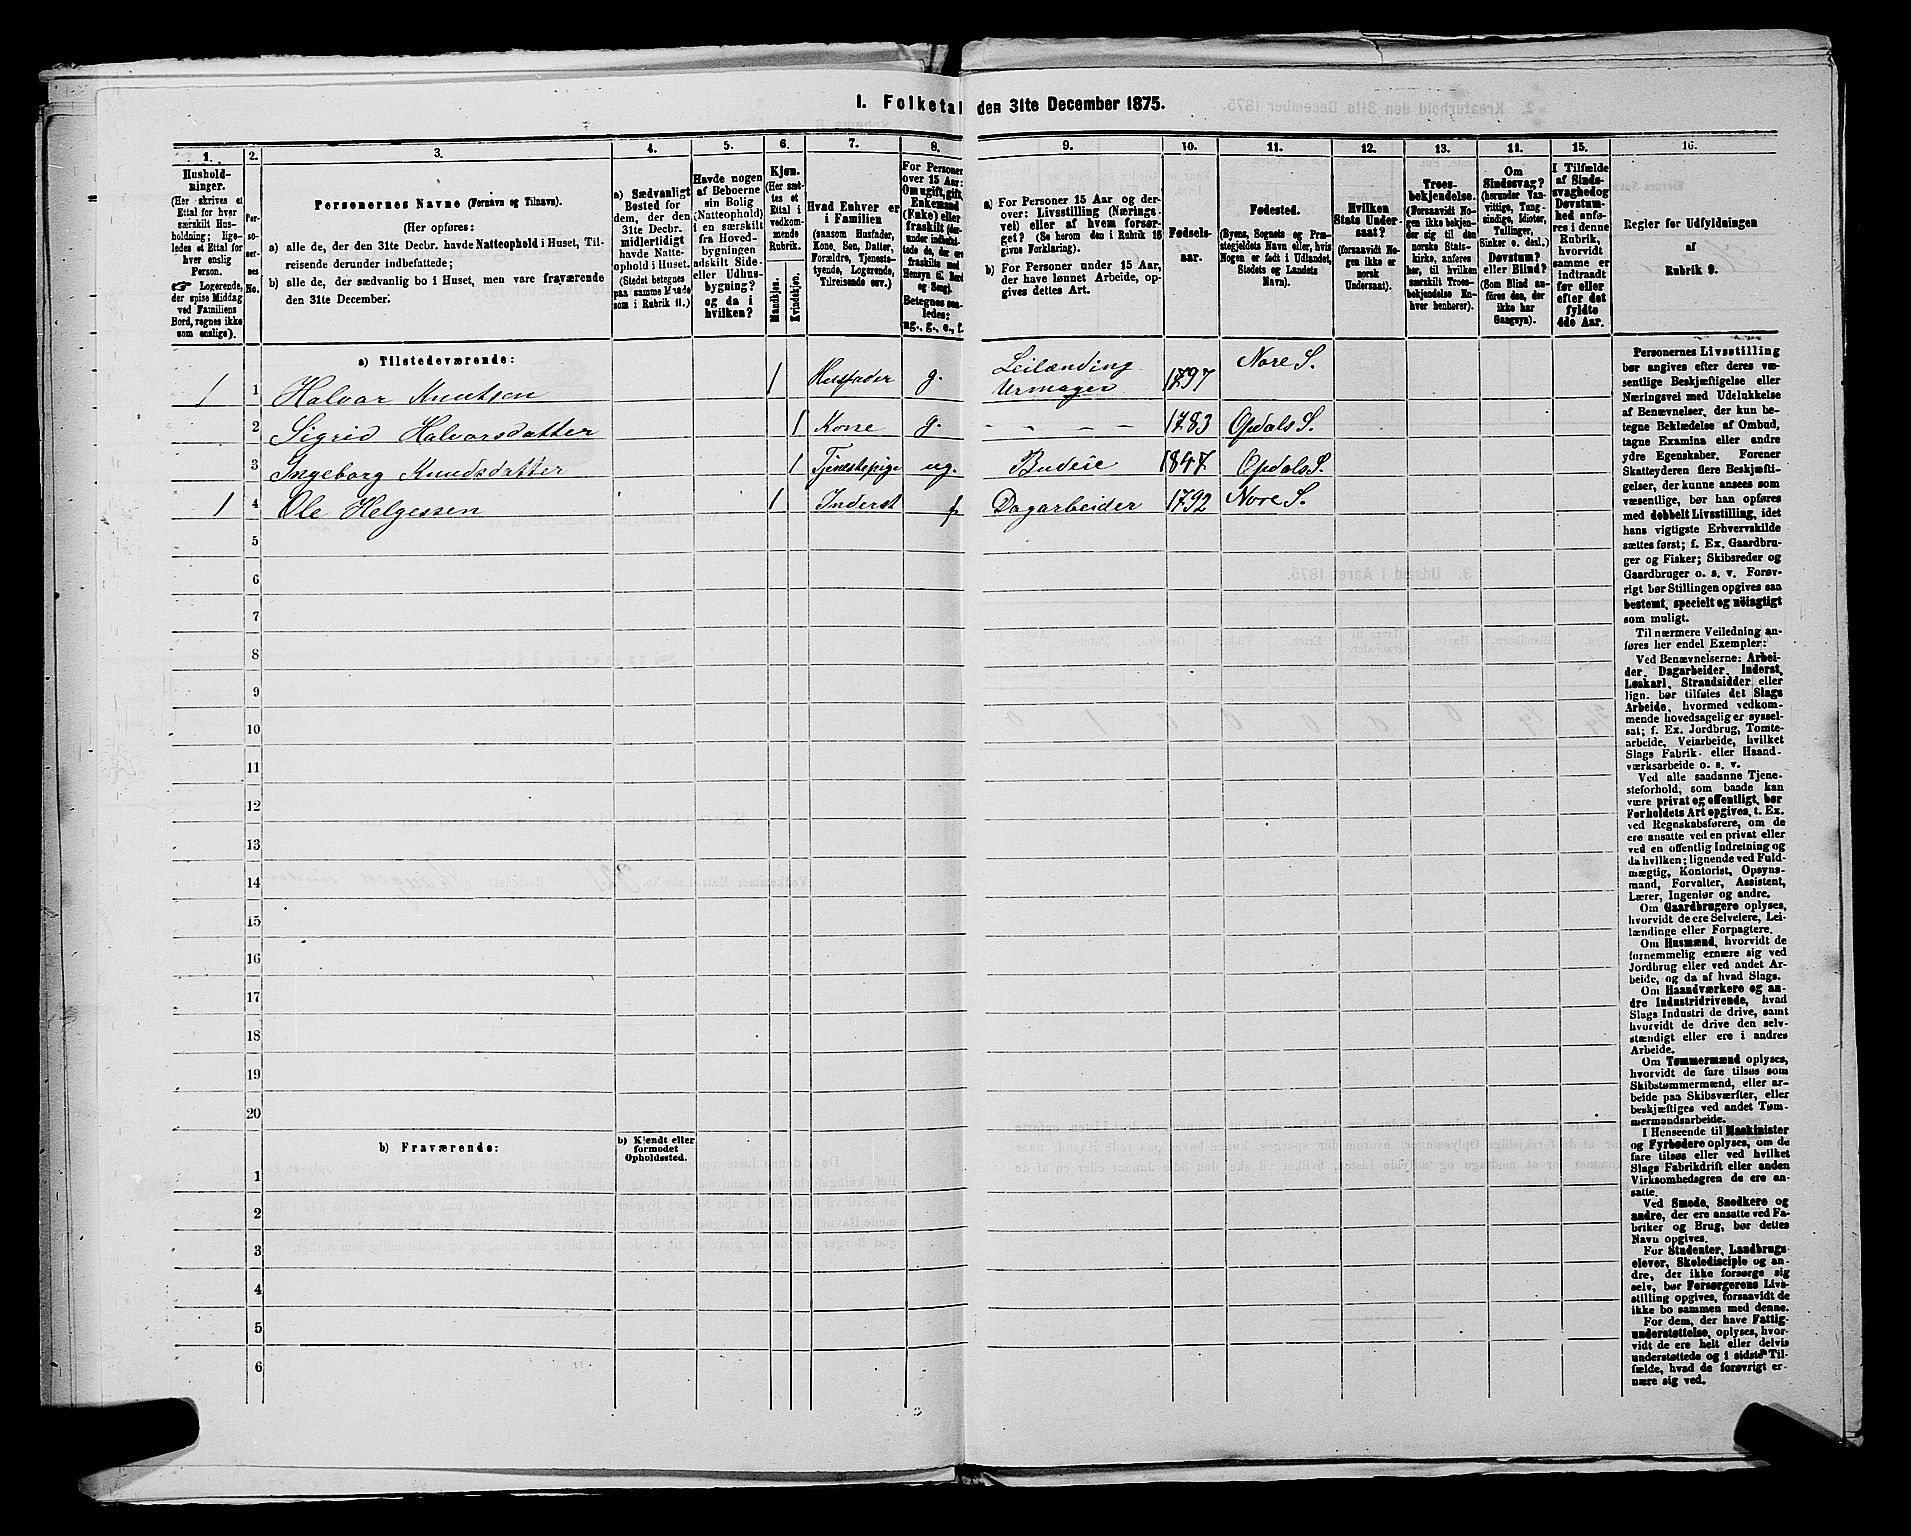 I. Folketal den 31te December 1875.
1. 2. 3. 4. 5. 6. 7. 8. 9. 10. 11. 12. 13. 14. 15. 16.
Husholdninger.
(Her skrives et
Ettal for hver
særskilt Hus-
holdning; lige-
ledes et Ettal for
hver enslig
Person.
☞ Logerende,
der spise Middag
ved Familiens
Bord, regnes ikke
som enslige).
Per-
so-
ner-
nes
No.
Personernes Navne (Fornavn og Tilnavn).
(Her opføres:
a) alle de, der den 31te Decbr. havde Natteophold i Huset, Til-
reisende derunder indbefattede;
b) alle de, der sædvanlig bo i Huset, men vare fraværende
den 31te December.
a) Sædvanligt
Bosted for
dem, der den
31te Decbr.
midlertidigt
havde Natte-
ophold i Huset.
(Stedet betegnes
paa samme Maade
som i Rubrik 11.)
Havde nogen
af Beboerne
sin Bolig
(Natteophold)
i en særskilt
fra Hoved-
bygningen
adskilt Side-
eller Udhus-
bygning?
og da i
hvilken?
Kjøn.
(Her sæt-
tes et
Ettal i
vedkom-
mende
Rubrik.
Mandkjøn.
Kvindkjøn.
Hvad Enhver er
i Familien
(saasom Husfader,
Kone, Søn, Datter,
Forældre, Tjeneste-
tyende, Logerende,
Tilreisende osv.)
For Personer
over 15 Aar:
Om ugift, gift,
Enkemand
(Enke) eller
fraskilt (der-
under indbefat-
tede de, der ere
fraskilte med
Hensyn til Bord
og Seng).
Betegnes saa-
ledes:
ug., g., e., f.
a) For Personer 15 Aar og der-
over: Livsstilling (Nærings-
vei) eller af hvem forsør-
get? (Se herom den i Rubrik 16
givne Forklaring).
b) For Personer under 15 Aar,
der have lønnet Arbeide, op-
gives dettes Art.
Fødsels-
aar.
Fødested.
(Byens, Sognets og Præ-
stegjeldets Navn eller, hvis
Nogen er født i Udlandet,
Stedets og Landets
Navn).
Hvilken
Stats Under-
saat?
(forsaavidt No-
gen ikke er
norsk
Undersaat).
Troes-
bekjendelse.
(Forsaavidt No-
gen ikke bekjen-
der sig til den
norske Stats-
kirke, anføres
her, til hvilken
særskilt Troes-
bekjendelse En-
hver henhører).
Om
Sindssvag?
(herunder Van-
vittige, Tung-
sindige, Idioter,
Tullinger,
Sinker o. desl.)
Døvstum?
eller Blind?
(Som Blind an-
føres den, der
ikke har
Gangsyn).
I Tilfælde
af Sinds-
svaghed og
Døvstum-
hed anfø-
res i denne
Rubrik,
hvorvidt
samme er
indtraadt
før eller
efter det
fyldte
4de Aar.
Regler for Udfyldningen
af
Rubrik 9.
a) Tilstedeværende:
1 1 Halvor Knutsen 1 Husfader g. Leilænding Urmager 1797 Nore S.
2 Sigrid Halvorsdatter 1 Kone g. - - - - 1783 Opdals S.
3 Ingeborg Knudsdatter 1 Tjenestepige ug. Budeie 1847 Opdals S.
1 4 Ole Helgessen 1 Inderst f. Dagarbeider 1792 Nore S.
5
6
7
8
9
10
11
12
13
14
15
16
17
18
19
20
b) Fraværende:
b) Kjendt eller
formodet
Opholdssted.
1
2
3
4
5
6
Personernes Livsstilling
bør angives efter deres væ-
sentlige Beskjæftigelse eller
Næringsvei med Udelukkelse
af Benævnelser, der kun be-
tegne Beklædelse af Ombud,
tagne Examina eller andre
ydre Egenskaber. Forener
Skatteyderen flere Beskjæfti-
gelser, der kunne ansees som
væsentlige, bør han opføres
med dobbelt Livsstilling, idet
hans vigtigste Erhvervskilde
sættes først; f. Ex. Gaardbru-
ger og Fisker; Skibsreder og
Gaardbruger o. s. v. Forøv-
rigt bør Stillingen opgives saa
bestemt, specielt og nøiagtigt
som muligt.
Til nærmere Veiledning an-
føres her endel Exempler:
Ved Benævnelserne: Arbei-
der, Dagarbeider, Inderst,
Løskarl, Strandsidder eller
lign. bør tilføies det Slags
Arbeide, hvormed vedkom-
mende hovedsagelig er syssel-
sat; f. Ex. Jordbrug, Tomte-
arbeide, Veiarbeide, hvilket
Slags Fabrik- eller Haand-
værksarbeide o. s. v.
Ved alle saadanne Tjene-
steforhold, som baade kan
være privat og offentligt, bør
Forholdets Art opgives, t. Ex.
ved Regnskabsførere, om de
ere ansatte ved en privat eller
ved en offentlig Indretning og
da hvilken; lignende ved Fuld-
mægtig, Kontorist, Opsyns-
mand, Forvalter, Assistent,
Lærer, Ingeniør og andre.
Om Gaardbrugere oplyses,
hvorvidt de ere Selveiere, Lei-
lændinge eller Forpagtere.
Om Husmænd, hvorvidt de
fornemmelig ernære sig ved
Jordbrug eller ved andet Ar-
beide, og da af hvad Slags.
Om Haandværkere og an-
dre Industridrivende, hvad
Slags Industri de drive, samt
hvorvidt de drive den selv-
stændigt eller ere i andres
Arbeide.
Om Tømmermænd oplyses,
hvorvidt de fare tilsøs som
Skibstømmermænd, eller ar-
beide paa Skibsværfter, eller
beskjæftiges ved andet Tøm-
mermandsarbeide.
I Henseende til Maskinister
og Fyrbødere oplyses, om de
fare tilsøs eller ved hvilket
Slags Fabrikdrift eller anden
Virksomhedsgren de ere an-
satte.
Ved Smede, Snedkere og
andre, der ere ansatte ved Fa-
briker og Brug, bør dettes
Navn opgives.
For Studenter, Landbrugs-
elever, Skoledisciple og an-
dre, der ikke forsørge sig
selv, bør Forsørgerens Livs-
stilling opgives, forsaavidt de
ikke bo sammen med denne.
For dem, der have Fattig-
understøttelse, oplyses, hvor-
vidt de ere helt eller delvis
understøttede og i sidste Til-
fælde, hvad de forøvrigt er-
nære sig ved.